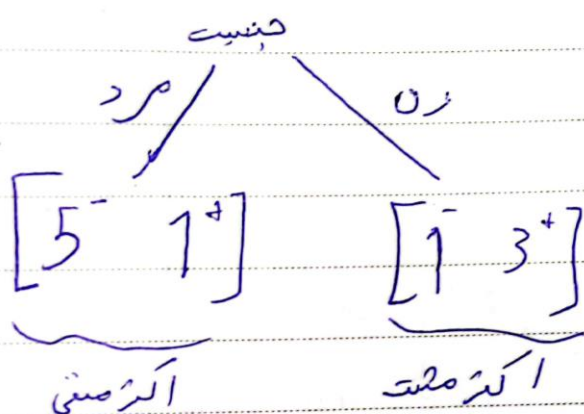 جنسیت
مرد زن
[5⁻ 1⁺] [1⁻ 3⁺]
اکثر منفی اکثر مثبت